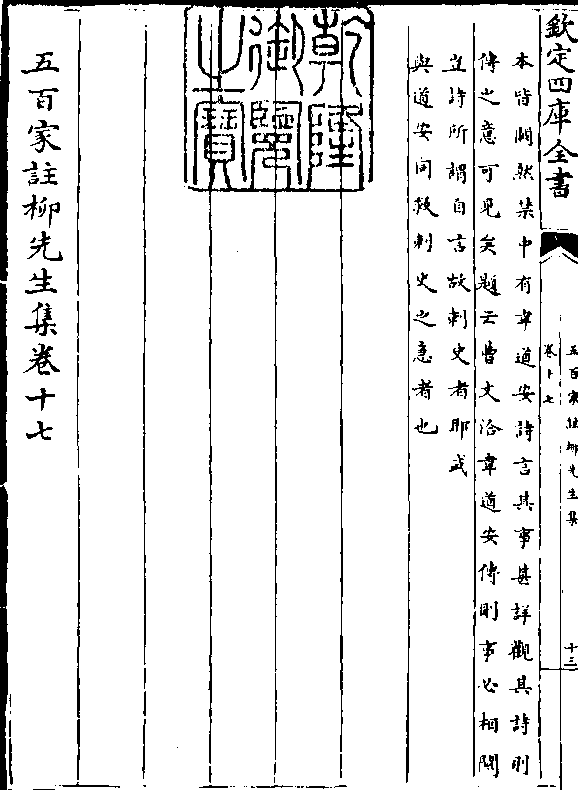 欽定四庫全書
五百家註柳先生集
卷十七
十三
本皆闕然集中有韋道安詩言其事甚詳觀其詩則
傳之意可見矣題云曹文洽韋道安傳則事必相關
豈詩所謂自言故刺史者耶或
與道安同故刺史之意者也
乾隆
御覽
之寶
五百家註柳先生集卷十七